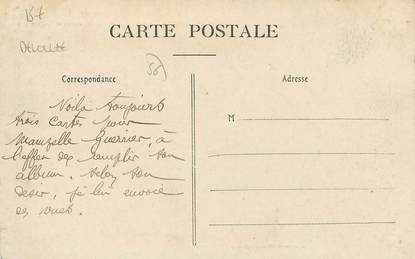 CARTE POSTALE
58
Correspondance
Adresse
M
Voila toujours
trois cartes pour
Mamzelle Guerrier, à
l'effet de remplir son
album. selon son
desir, je lui envoie
ces vues.